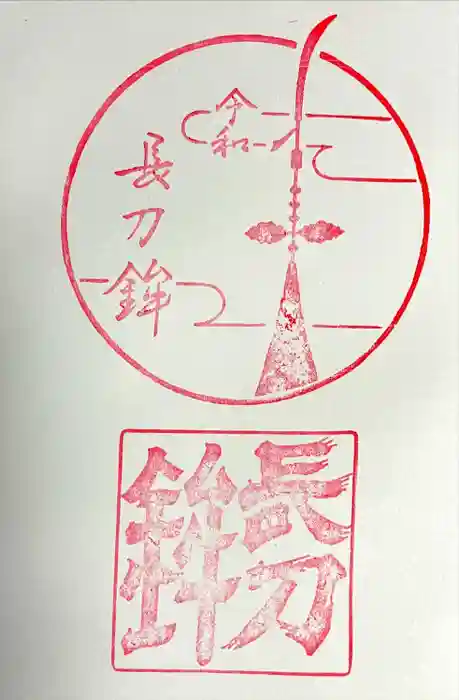 令和
長刀鉾
長刀
鉾